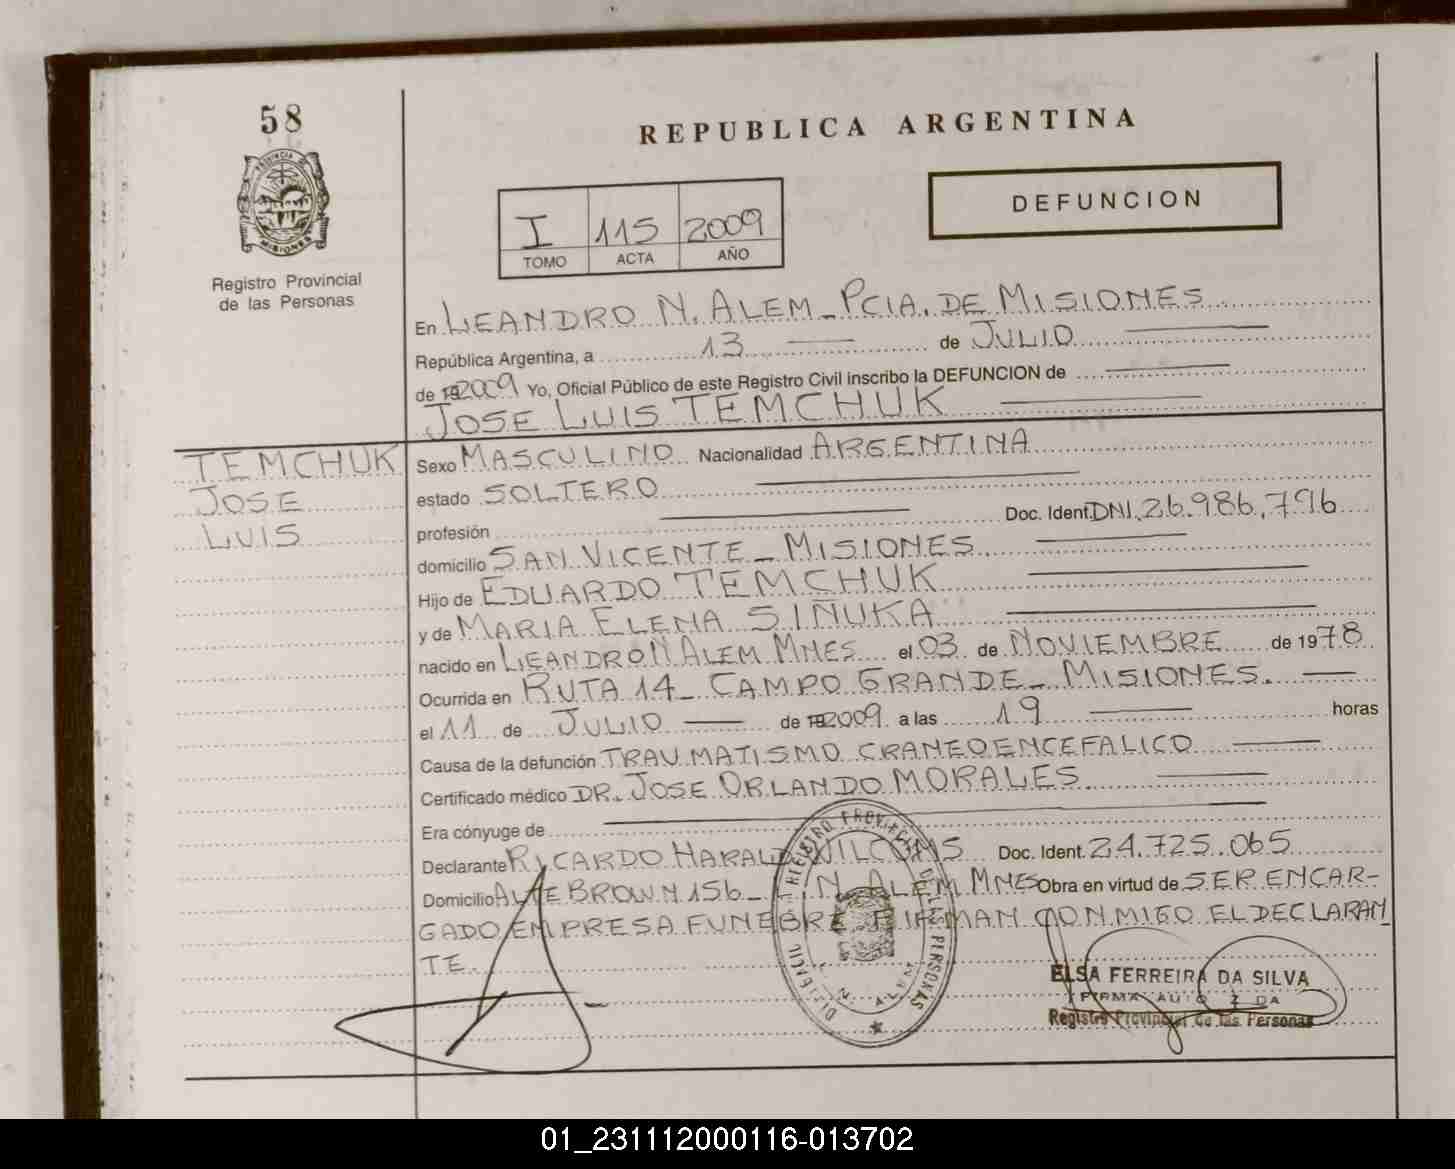 58
REPUBLICA ARGENTINA
PROVINCIA DE
MISIONES
DEFUNCION
I 115 2009
TOMO ACTA AÑO
Registro Provincial
de las Personas
En LEANDRO N. ALEM - PCIA. DE MISIONES
República Argentina, a 13 de JULIO
de 2009 Yo, Oficial Público de este Registro Civil inscribo la DEFUNCION de
JOSE LUIS TEMCHUK
TEMCHUK
JOSE
LUIS
Sexo MASCULINO Nacionalidad ARGENTINA
estado SOLTERO
profesión Doc. Ident. DNI. 26.986.796
domicilio SAN VICENTE - MISIONES
Hijo de EDUARDO TEMCHUK
y de MARIA ELENA SIÑUKA
nacido en LEANDRO N ALEM MNES el 03 de NOVIEMBRE de 1978
Ocurrida en RUTA 14 - CAMPO GRANDE - MISIONES.
el 11 de JULIO de 2009 a las 19 horas
Causa de la defunción TRAUMATISMO CRANEOENCEFALICO
Certificado médico DR. JOSE ORLANDO MORALES
Era cónyuge de
Declarante RICARDO HARALD WILCOMS Doc. Ident. 24.725.065
Domicilio ALTE BROWN 156 - L. N. ALEM MNES Obra en virtud de SER ENCAR-
GADO EMPRESA FUNEBRE CONMIGO EL DECLARAN
TE.
ELSA FERREIRA DA SILVA
FIRMA AUTORIZADA
Registro Provincial de las Personas
01_231112000116-013702